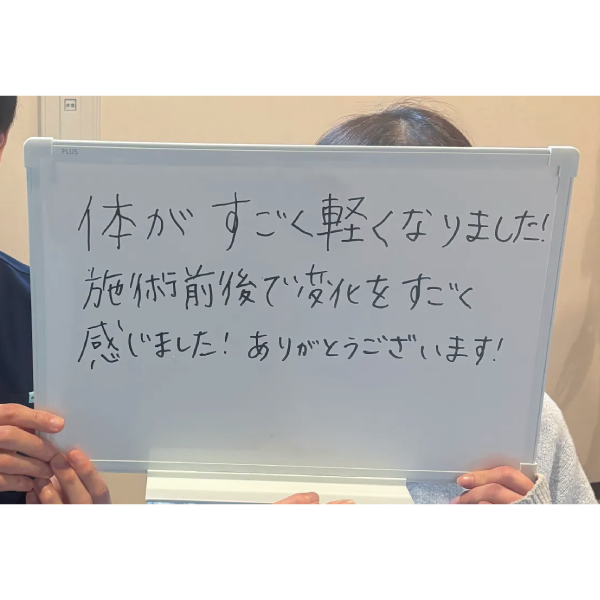 PLUS
体がすごく軽くなりました!
施術前後で変化をすごく
感じました! ありがとうございます!